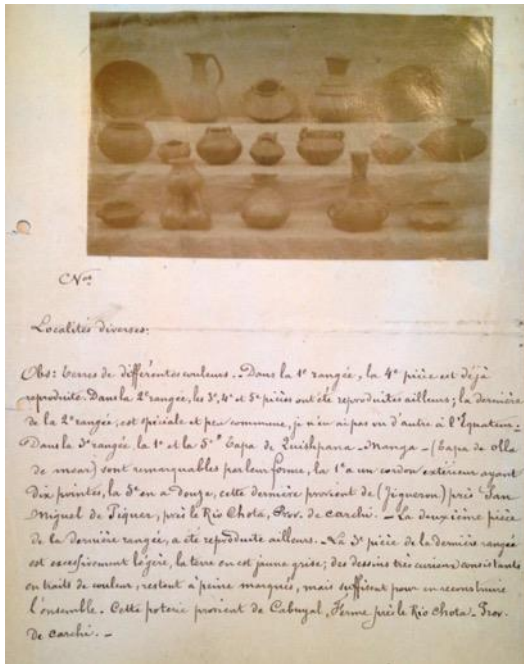 CNos
Localités diverses.
Obs: terres de différentes couleurs. - Dans la 1e rangée, la 4e pièce est déjà
reproduite. Dans la 2e rangée, les 3e, 4e et 5e pièces ont été reproduites ailleurs; la dernière
de la 2e rangée, est spéciale et peu commune, je n'en ai pas vu d'autre à l'Equateur. -
Dans la 3e rangée, la 1e et la 5e "Tapa de Quishpana-Manga - (Tapa de Olla
de mear) sont remarquables par leur forme, la 1e a un cordon extérieur ayant
dix pointes, la 5e en a douze, cette dernière provient de (Jigueron) près San
Miguel de Tiquer, près le Rio Chota, Prov. de Carchi. - La deuxième pièce
de la dernière rangée, a été reproduite ailleurs. La 3e pièce de la dernière rangée
est excessivement légère, la terre en est jaune grise; des dessins très curieux consistants
en traits de couleur, restent à peine marqués, mais suffisent pour en reconstruire
l'ensemble. Cette poterie provient de Cabuyal, Ferme près le Rio Chota. Prov.
de Carchi. -